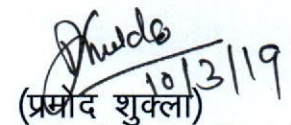 10/3/19
(प्रमोद शुक्ला)